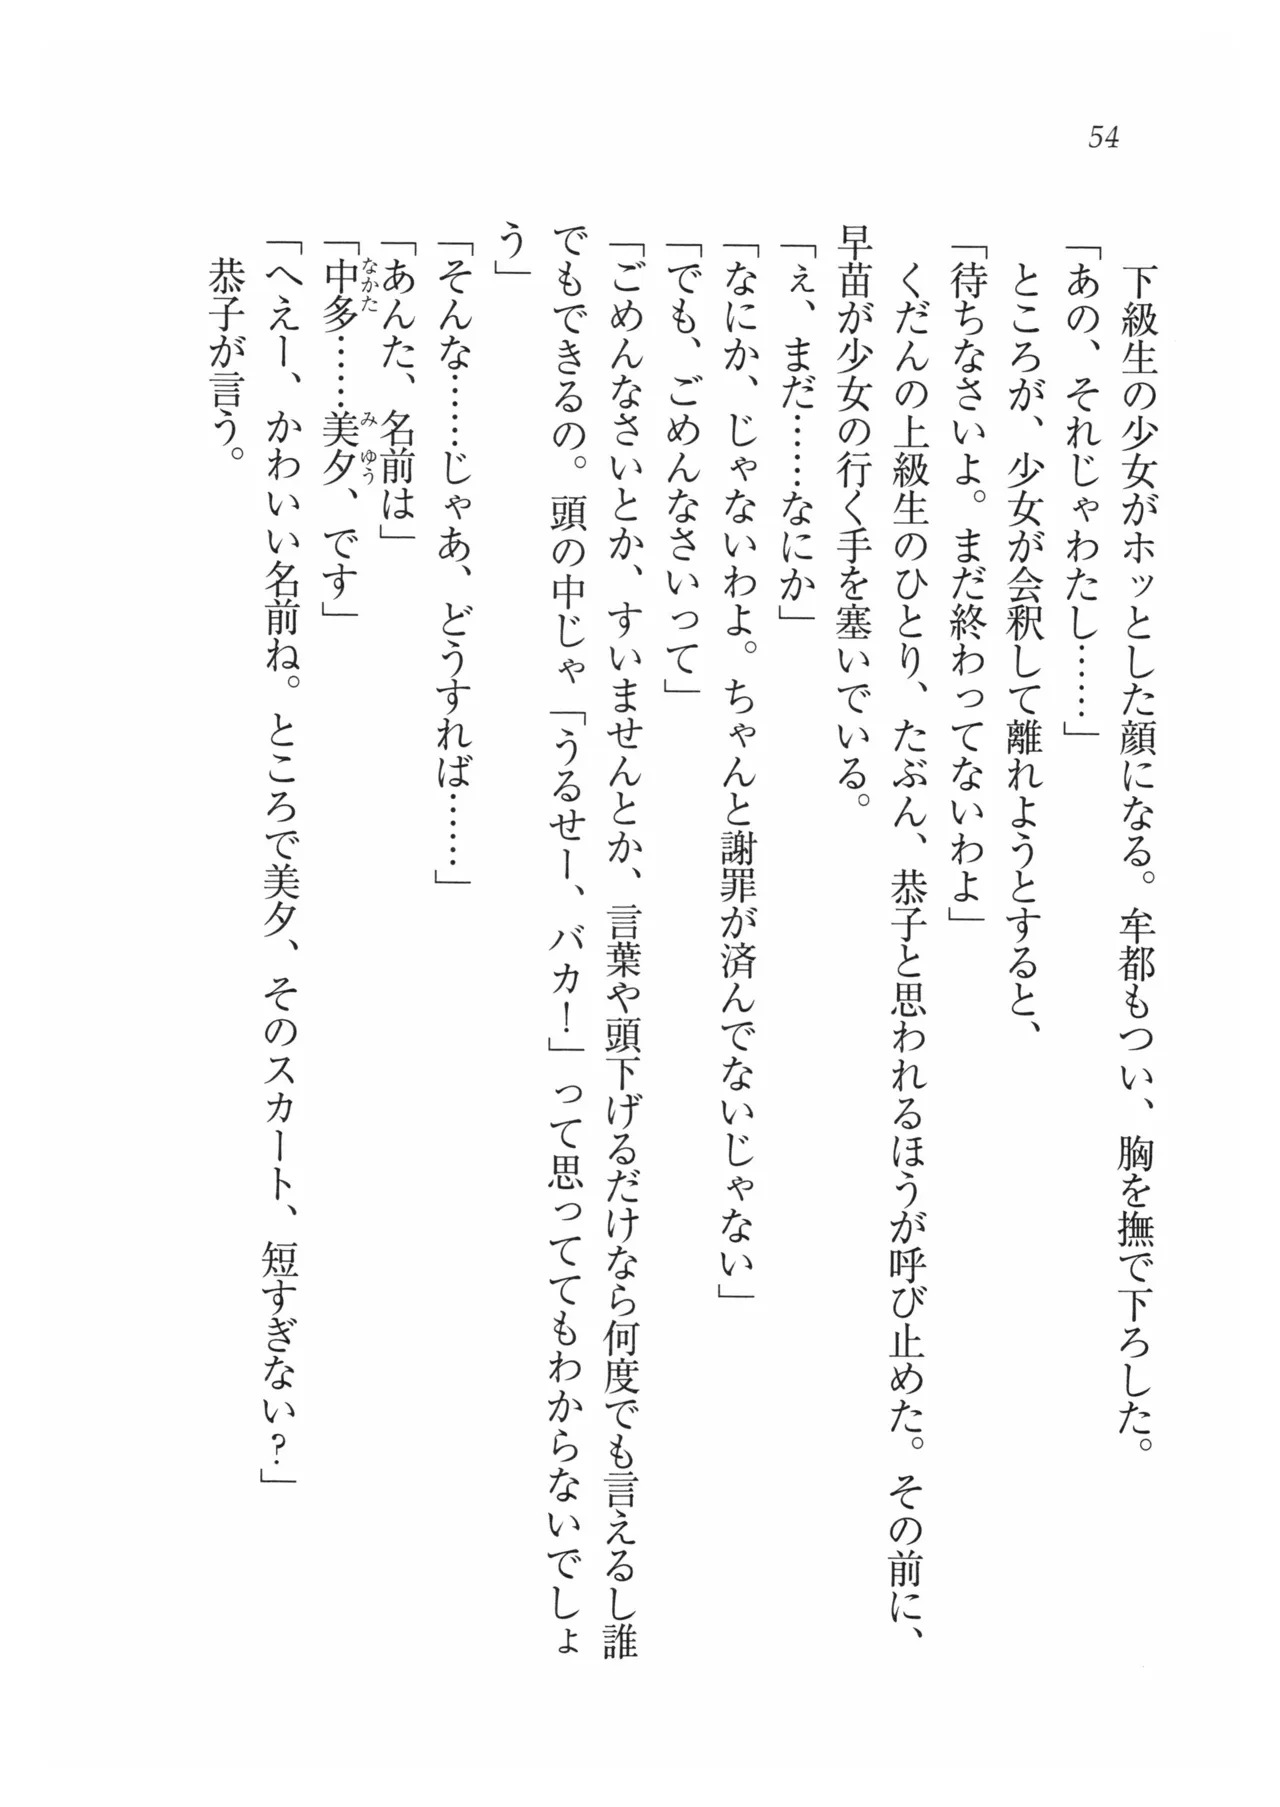 54
下級生の少女がホッとした顔になる。牟都もつい、胸を撫で下ろした。
「あの、それじゃわたし……」
ところが、少女が会釈して離れようとすると、
「待ちなさいよ。まだ終わってないわよ」
くだんの上級生のひとり、たぶん、恭子と思われるほうが呼び止めた。その前に、
早苗が少女の行く手を塞いでいる。
「ぇ、まだ……なにか」
「なにか、じゃないわよ。ちゃんと謝罪が済んでないじゃない」
「でも、ごめんなさいって」
「ごめんなさいとか、すいませんとか、言葉や頭下げるだけなら何度でも言えるし誰
でもできるの。頭の中じゃ「うるせー、バカ！」って思っててもわからないでしょ
う」
「そんな……じゃあ、どうすれば……」
「あんた、名前は」
なかた
み ゆう
「中多……美夕、です」
「へえー、かわいい名前ね。ところで美夕、そのスカート、短すぎない？」
恭子が言う。